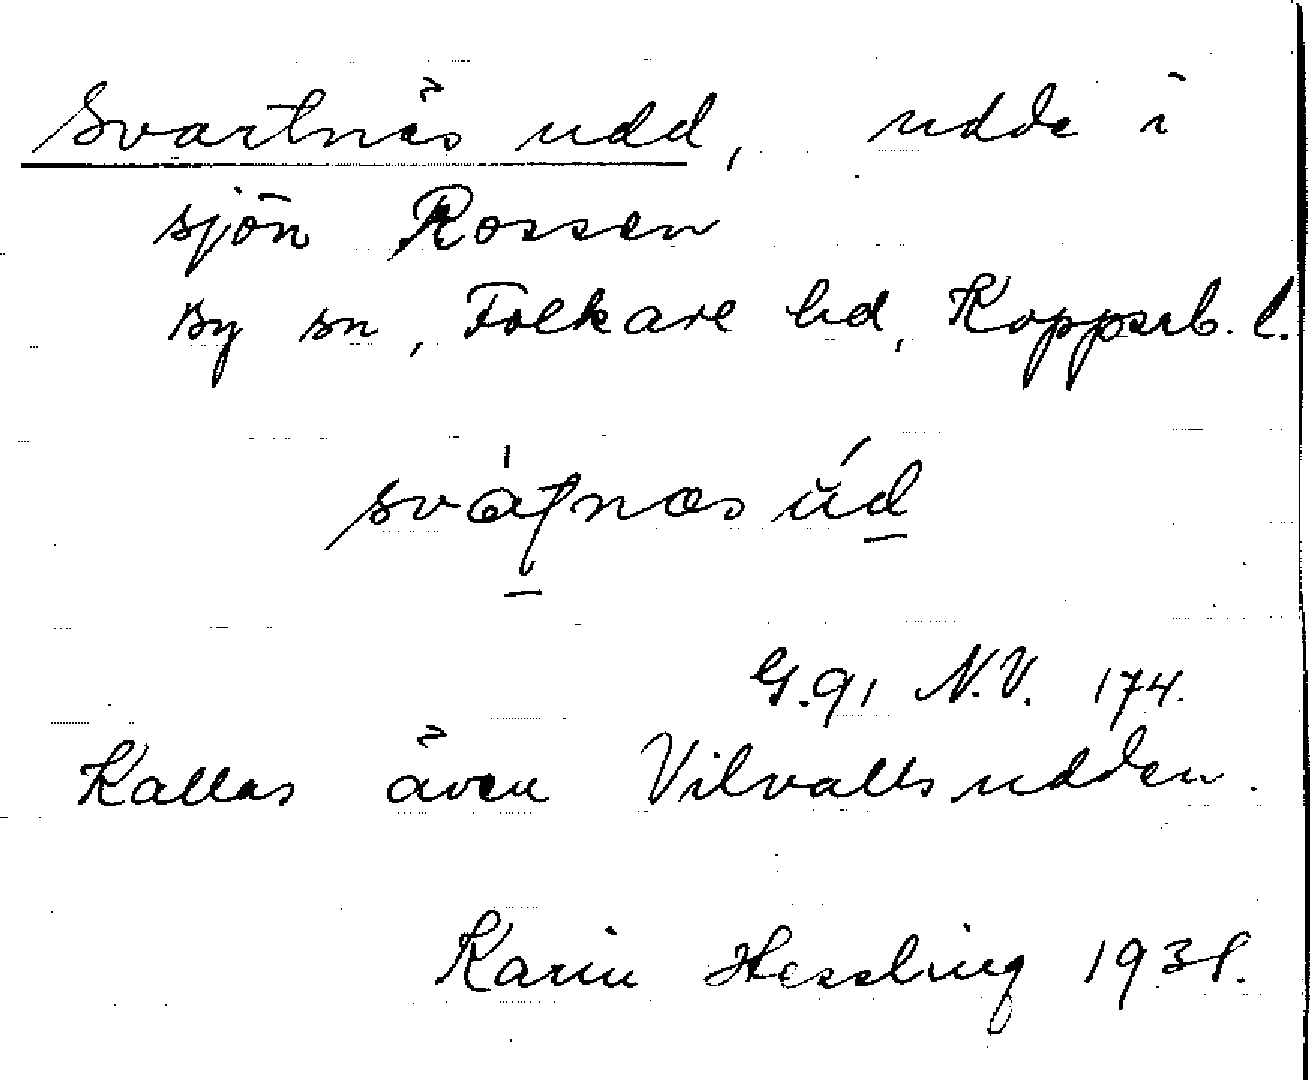 Svartnäs udd, udde i
sjön Rossen
By sn, Folkare hd, Kopparb. l.
G.91 N.V. 174.
Kallas även Vilvallsudden.
Karin Hessling 1931.